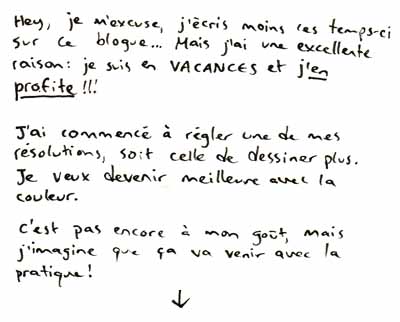 Hey, je m'excuse, j'écris moins ces temps-ci
sur ce blogue... Mais j'ai une excellente
raison: je suis en VACANCES et j'en
profite!!!
J'ai commencé à régler une de mes
résolutions, soit celle de dessiner plus.
Je veux devenir meilleure avec la
couleur.
C'est pas encore à mon goût, mais
j'imagine que ça va venir avec la
pratique!